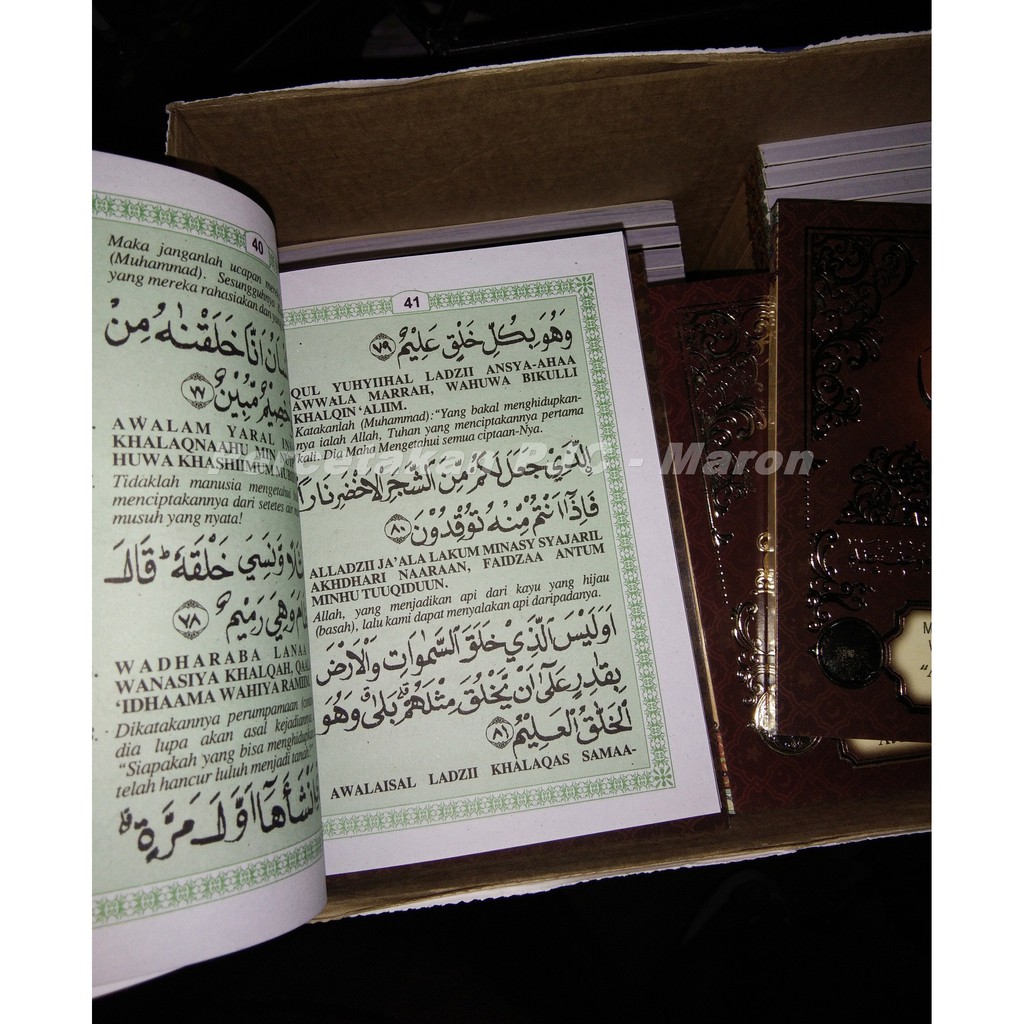 40
Maka janganlah ucapan
(Muhammad). Sesungguhnya
yang mereka rahasiakan dan
اَنَّا خَلَقْنٰهُ مِنْ
مُّبِيْنٌ ٧٧
AWALAM YARAL
KHALAQNAAHU MIN
HUWA KHASHIIMUM
Tidaklah manusia mengetahui
menciptakannya dari setetes air
musuh yang nyata!
وَنَسِيَ خَلْقَهٗ ۗ قَالَ
وَهِيَ رَمِيْمٌ ٧٨
WADHARABA LANAA
WANASIYA KHALQAH, QAAL
‘IDHAAMA WAHIYA RAMIIM
Dikatakannya perumpamaan
dia lupa akan asal kejadiannya
“Siapakah yang bisa menghidupkan
telah hancur luluh menjadi tanah
اَوَّلَ مَرَّةٍ ۗ
41
وَهُوَ بِكُلِّ خَلْقٍ عَلِيْمٌ ٧٩
QUL YUHYIIHAL LADZII ANSYA-AHAA
AWWALA MARRAH, WAHUWA BIKULLI
KHALQIN ‘ALIIM.
Katakanlah (Muhammad): “Yang bakal menghidupkan-
nya ialah Allah, Tuhan yang menciptakannya pertama
kali. Dia Maha Mengetahui semua ciptaan-Nya.
الَّذِيْ جَعَلَ لَكُمْ مِنَ الشَّجَرِ الْاَخْضَرِ نَارًا
فَاِذَآ اَنْتُمْ مِنْهُ تُوْقِدُوْنَ ٨٠
ALLADZII JA’ALA LAKUM MINASY SYAJARIL
AKHDHARI NAARAAN, FAIDZAA ANTUM
MINHU TUUQIDUUN.
Allah, yang menjadikan api dari kayu yang hijau
(basah), lalu kami dapat menyalakan api daripadanya.
اَوَلَيْسَ الَّذِيْ خَلَقَ السَّمٰوَاتِ وَالْاَرْضَ
بِقَادِرٍ عَلٰٓى اَنْ يَّخْلُقَ مِثْلَهُمْ ۗ بَلٰى وَهُوَ
الْخَلّٰقُ الْعَلِيْمُ ٨١
AWALAISAL LADZII KHALAQAS SAMAA-
- Maron